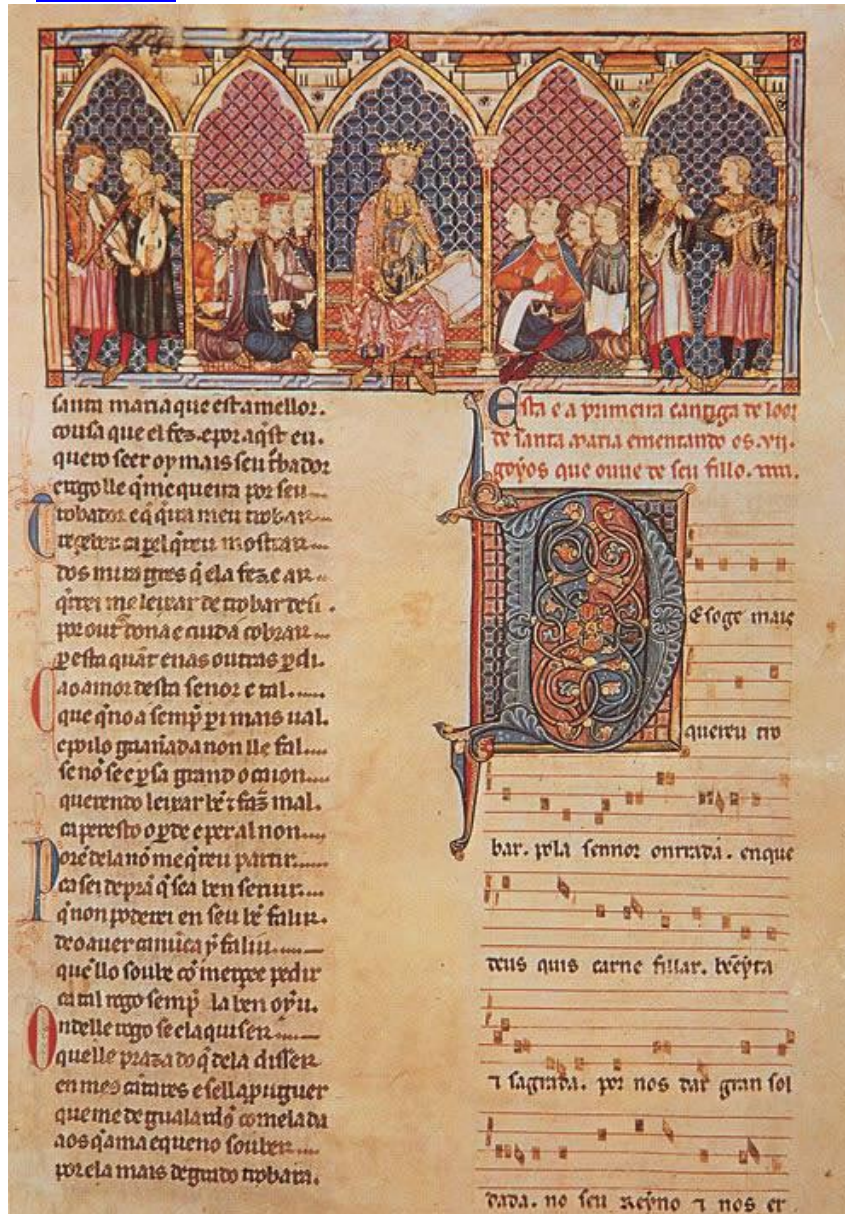 santa maria que est a mellor.
cousa que el fez. e por aqst eu.
quero seer oy mais seu t̃bador
e rogo lle q̃ me queira por seu
Trobador e q̃ q̃ira meu trobar
reçeber. ca per el q̃reu mostrar
dos miragres q̃ ela fez. e ar
q̃rrei me leixar de trobar desi.
por outra dona e cuid a cobrar
per esta quãt enas outras ꝑdi.
Ca o amor desta sennor e tal.
que q̃no a semp̃ ꝑi mais ual.
e poilo gaannada non lle fal
se nõ se e ꝑ sa grand ocaion.
querendo leixar bẽ ⁊ faz̃ mal.
ca per esto o ꝑde e per al non.
Porẽ dela nõ me q̃reu partir.
ca sei de prã q̃ sea ben seruir.
q̃ non poderei en seu bẽ falir.
de o auer ca nũca ẏ faliu.
quẽ llo soube cõ merçee pedir
ca tal rogo semp̃ la ben oyu.
Onde lle rogo se ela quiser
que lle praza do q̃ dela disser
en meus cãtares e se ll aprouguer
que me de gualardõ com ela da
aos q̃ ama e queno souber
por ela mais de grado trobara.
Esta e a primeira cantiga de loor
de santa maria ementando os. vii.
goyos que ouue de seu fillo.
DEsoge mais
quereu tro
bar. pola sennor onrrada. en que
deus quis carne fillar. bẽeyta
⁊ sagrada. por nos dar gran sol
dada. no seu reyno ⁊ nos er